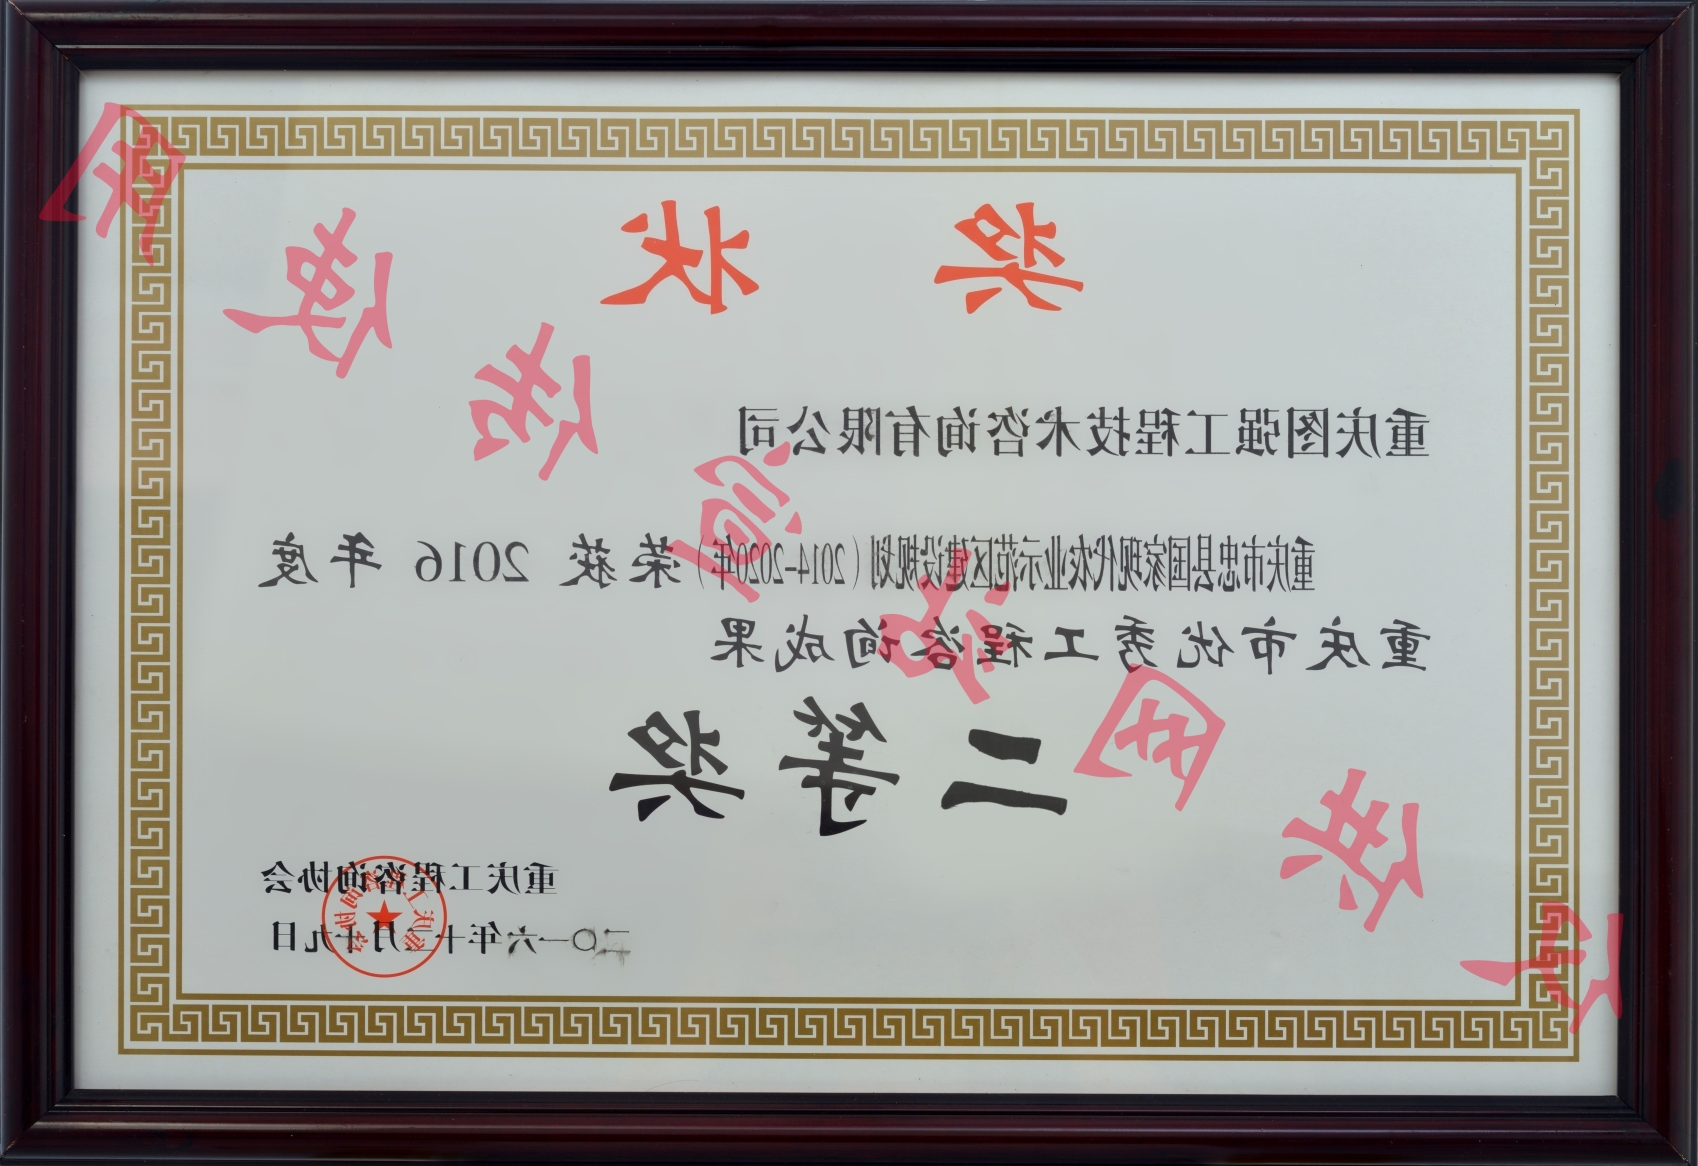 奖 状
重庆图强工程技术咨询有限公司
重庆市忠县国家现代农业示范区建设规划（2014-2020年）荣获 2016 年度
重庆市优秀工程咨询成果
二等奖
重庆工程咨询协会
二〇一六年十二月十九日
重庆工程咨询协会
仅供网站查询使用